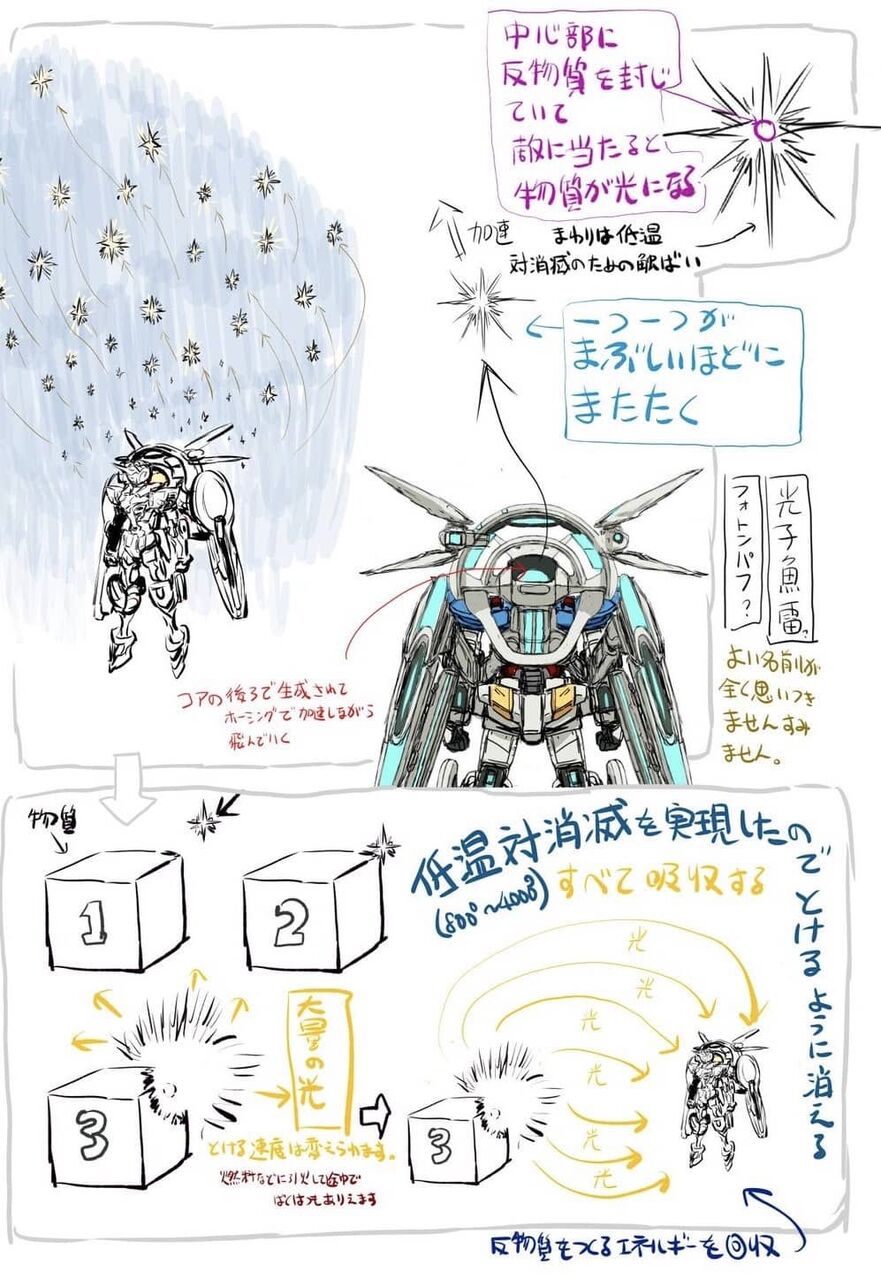 中心部に
反物質を封じ
ていて
敵に当たると
物質が光になる
加速
まわりは低温
対消滅のための
一つ一つが
まぶしいほどに
またたく
光子魚雷?
フォトンパフ?
よい名前が
全く思いつき
ませんすみ
ません。
コアの後ろで生成されて
ホーミングで加速しながら
飛んでいく
物質
1
2
低温対消滅を実現したので とけるように消える
(800°~4000°)
すべて吸収する
光
光
光
光
光
光
3
大量の光
3
とける速度は変えられます。
燃料などに引火して途中で
ばくはつもありえます
反物質をつくるエネルギーを回収